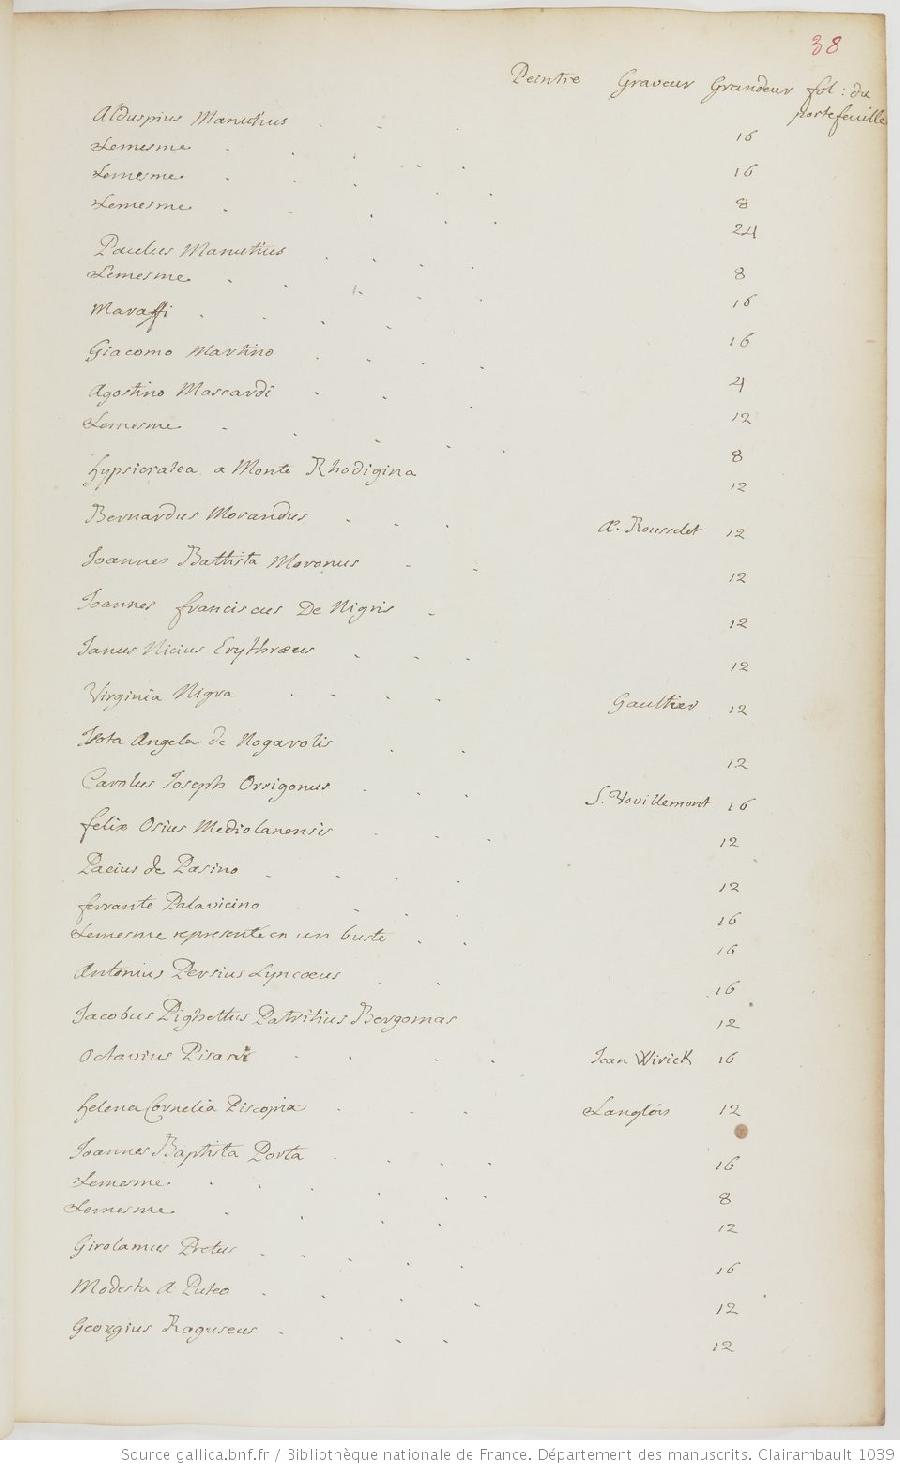 38
Peintre Graveur Grandeur fol : du
portefeuille
Alduspius Manutius 16
Lemesme 16
Lemesme 8
Lemesme 24
Paulus Manutius 8
Lemesme 16
Maraffi 16
Giacomo Martino 4
Agostino Mascardi 12
Lemesme 8
hypsicratea a Monte Rhodigina 12
Bernardus Morandus Æ. Rousselet 12
Joannes Battista Moronus 12
Joannes franciscus De Nigris 12
Janus Nicius Erythræus 12
Virginia Nigra Gaultier 12
Isota Angela de Nogarolis 12
Carolus Joseph Orrigonus S. Vovillemont 16
felix Osius Mediolanensis 12
Pacius de Pasino 12
ferrante Palavicino 16
Lemesme represente en un buste 16
Antonius Persius Lyncœus 16
Jacobus Pighettus Patritius Bergomas 12
Octavius Pisani Jean Wirick 16
helena Cornelia Piscopia Langlois 12
Joannes Baptista Porta 16
Lemesme 8
Lemesme 12
Girolamus Pretus 16
Modesta A Puteo 12
Georgius Raguseus 12
Source gallica.bnf.fr / Bibliothèque nationale de France. Département des manuscrits. Clairambault 1039